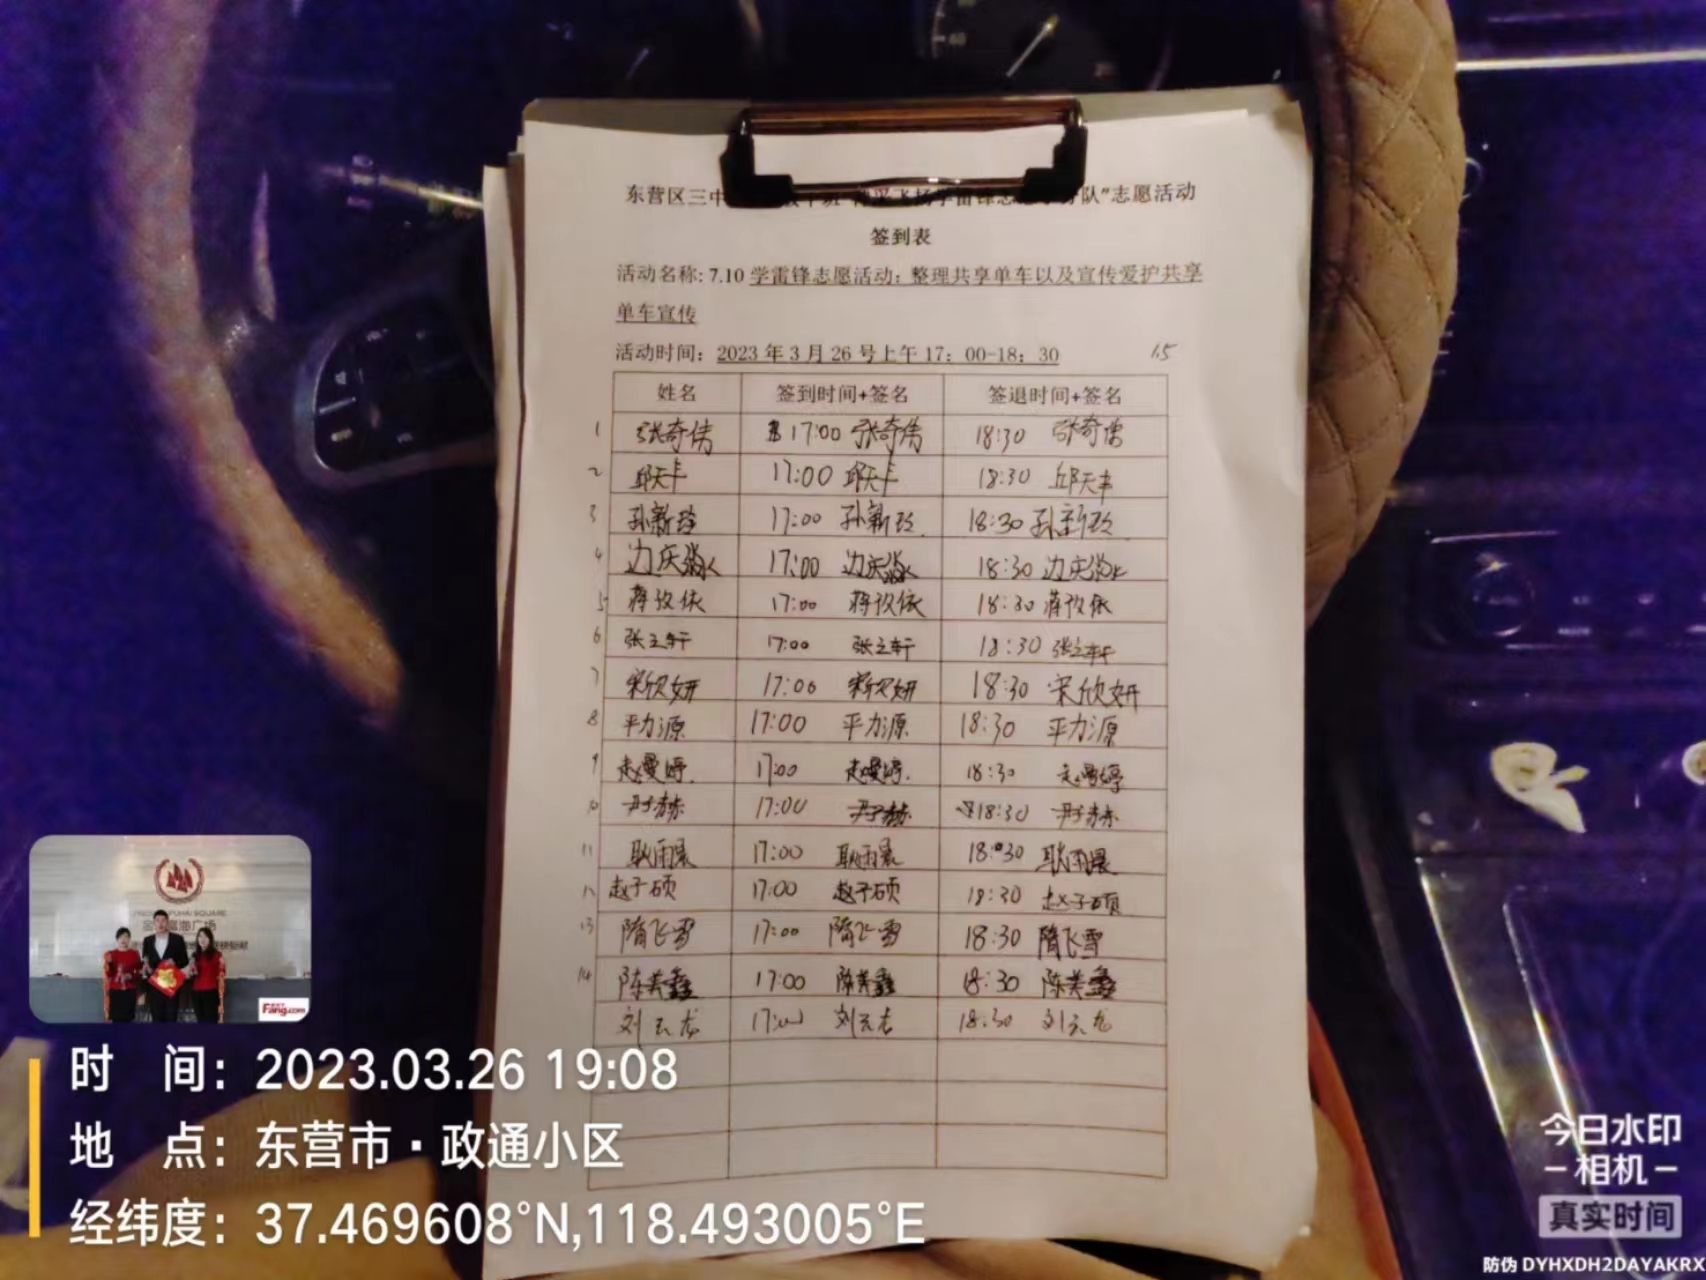 东营区三中
队”志愿活动
签到表
活动名称: 7.10 学雷锋志愿活动：整理共享单车以及宣传爱护共享
单车宣传
活动时间：2023 年 3 月 26 号上午 17：00-18：30 1.5
姓名 签到时间+签名 签退时间+签名
1 张奇伟 17:00 张奇伟 18:30 张奇伟
2 邱天丰 17:00 邱天丰 18:30 邱天丰
3 孙新玲 17:00 孙新玲 18:30 孙新玲
4 边庆淼 17:00 边庆淼 18:30 边庆淼
5 蒋孜依 17:00 蒋孜依 18:30 蒋孜依
6 张立轩 17:00 张立轩 18:30 张立轩
7 宋欣妍 17:00 宋欣妍 18:30 宋欣妍
8 平力源 17:00 平力源 18:30 平力源
9 赵曼婷 17:00 赵曼婷 18:30 赵曼婷
10 17:00 18:30
11 耿雨晨 17:00 耿雨晨 18:30 耿雨晨
12 赵子硕 17:00 赵子硕 18:30 赵子硕
13 隋飞雪 17:00 隋飞雪 18:30 隋飞雪
14 陈美鑫 17:00 陈美鑫 18:30 陈美鑫
刘云龙 17:00 刘云龙 18:30 刘云龙
Fang.com
时 间：2023.03.26 19:08
地 点：东营市·政通小区
经纬度：37.469608°N,118.493005°E
今日水印
相机
真实时间
防伪 DYHXDH2DAYAKRX